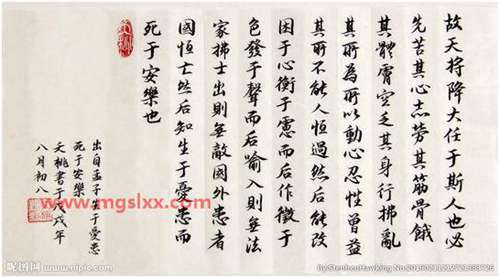 故天将降大任于斯人也必
先苦其心志劳其筋骨餓
其體膚空乏其身行拂亂
其所為所以動心忍性曾益
其所不能人恒過然后能改
困于心衡于慮而后作徵于
色發于聲而后喻入則無法
家拂士出則無敵國外患者
國恒亡然后知生于憂患而
死于安樂也
出自孟子生于憂患
死于安樂
書于戊戌年
八月初八
www.mgslxx.com
昵图网 www.nipic.com
By:StephenHawking